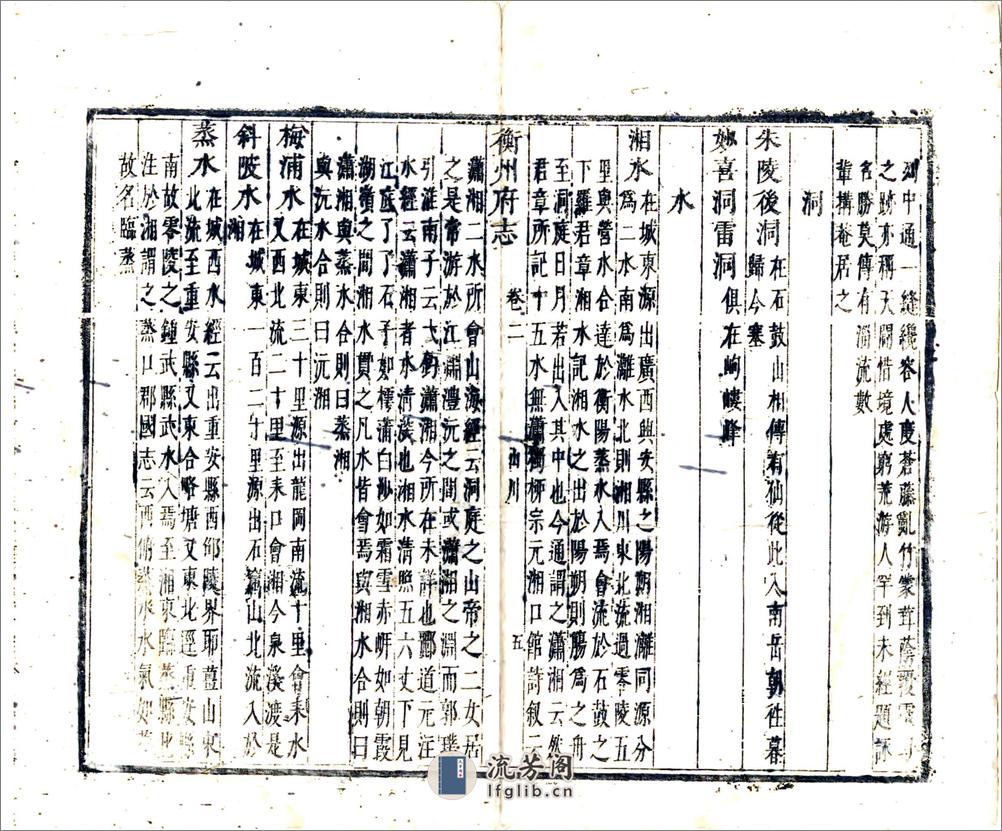 列中通一縫纔容人度蒼藤亂竹蒙茸蔭覆
之跡亦稱天闢惜境處窮荒游人罕到未經題詠
名勝莫傳有淄流數
輩構菴居之
洞
朱陵後洞在石鼓山相傳有仙從此入南岳朝徃暮
歸今塞
妙喜洞雷洞俱在岣嶁峰
水
湘水在城東源出廣西興安縣之陽朔湘灕同源分
爲二水南爲灕水北則湘川東北流過零陵五
里與營水合達於衡陽蒸水入焉會流於石鼓之
下羅君章湘水記湘水之出於陽朔則觴爲之舟
至洞庭日月若出入其中也今通謂之瀟湘云然
君章所記十五水無瀟獨栁宗元湘口館詩叙二
衡州府志
卷二
山川
五
瀟湘二水所會山海經云洞庭之山帝之二女居
之是常游於江淵澧沅之間或瀟湘之淵而郭璞
引淮南子云弋釣瀟湘今所在未詳也酈道元注
水經云瀟湘者水清深也湘水清照五六丈下見
江底了了石子如樗蒲白沙如霜雪赤岍如朝霞
湖嶺之間湘水貫之凡水皆會焉與湘水合則曰
瀟湘與蒸水合則曰蒸湘
與沅水合則曰沅湘
梅浦水在城東三十里源出龍岡南流十里會耒水
又西北流二十里至耒口會湘今泉溪渡是
斜陂水在城東一百二十里源出石山北流入於
湘
蒸水在城西水經云出重安縣西邵陵界耶薑山東
北流至重安縣又東合略塘又東北逕重安縣
南故零陵之鍾武縣武水入焉至湘東臨蒸縣北
注於湘謂之蒸口郡國志云西俯蒸水水氣如蒸
故名臨蒸
流芳阁
lfglib.cn